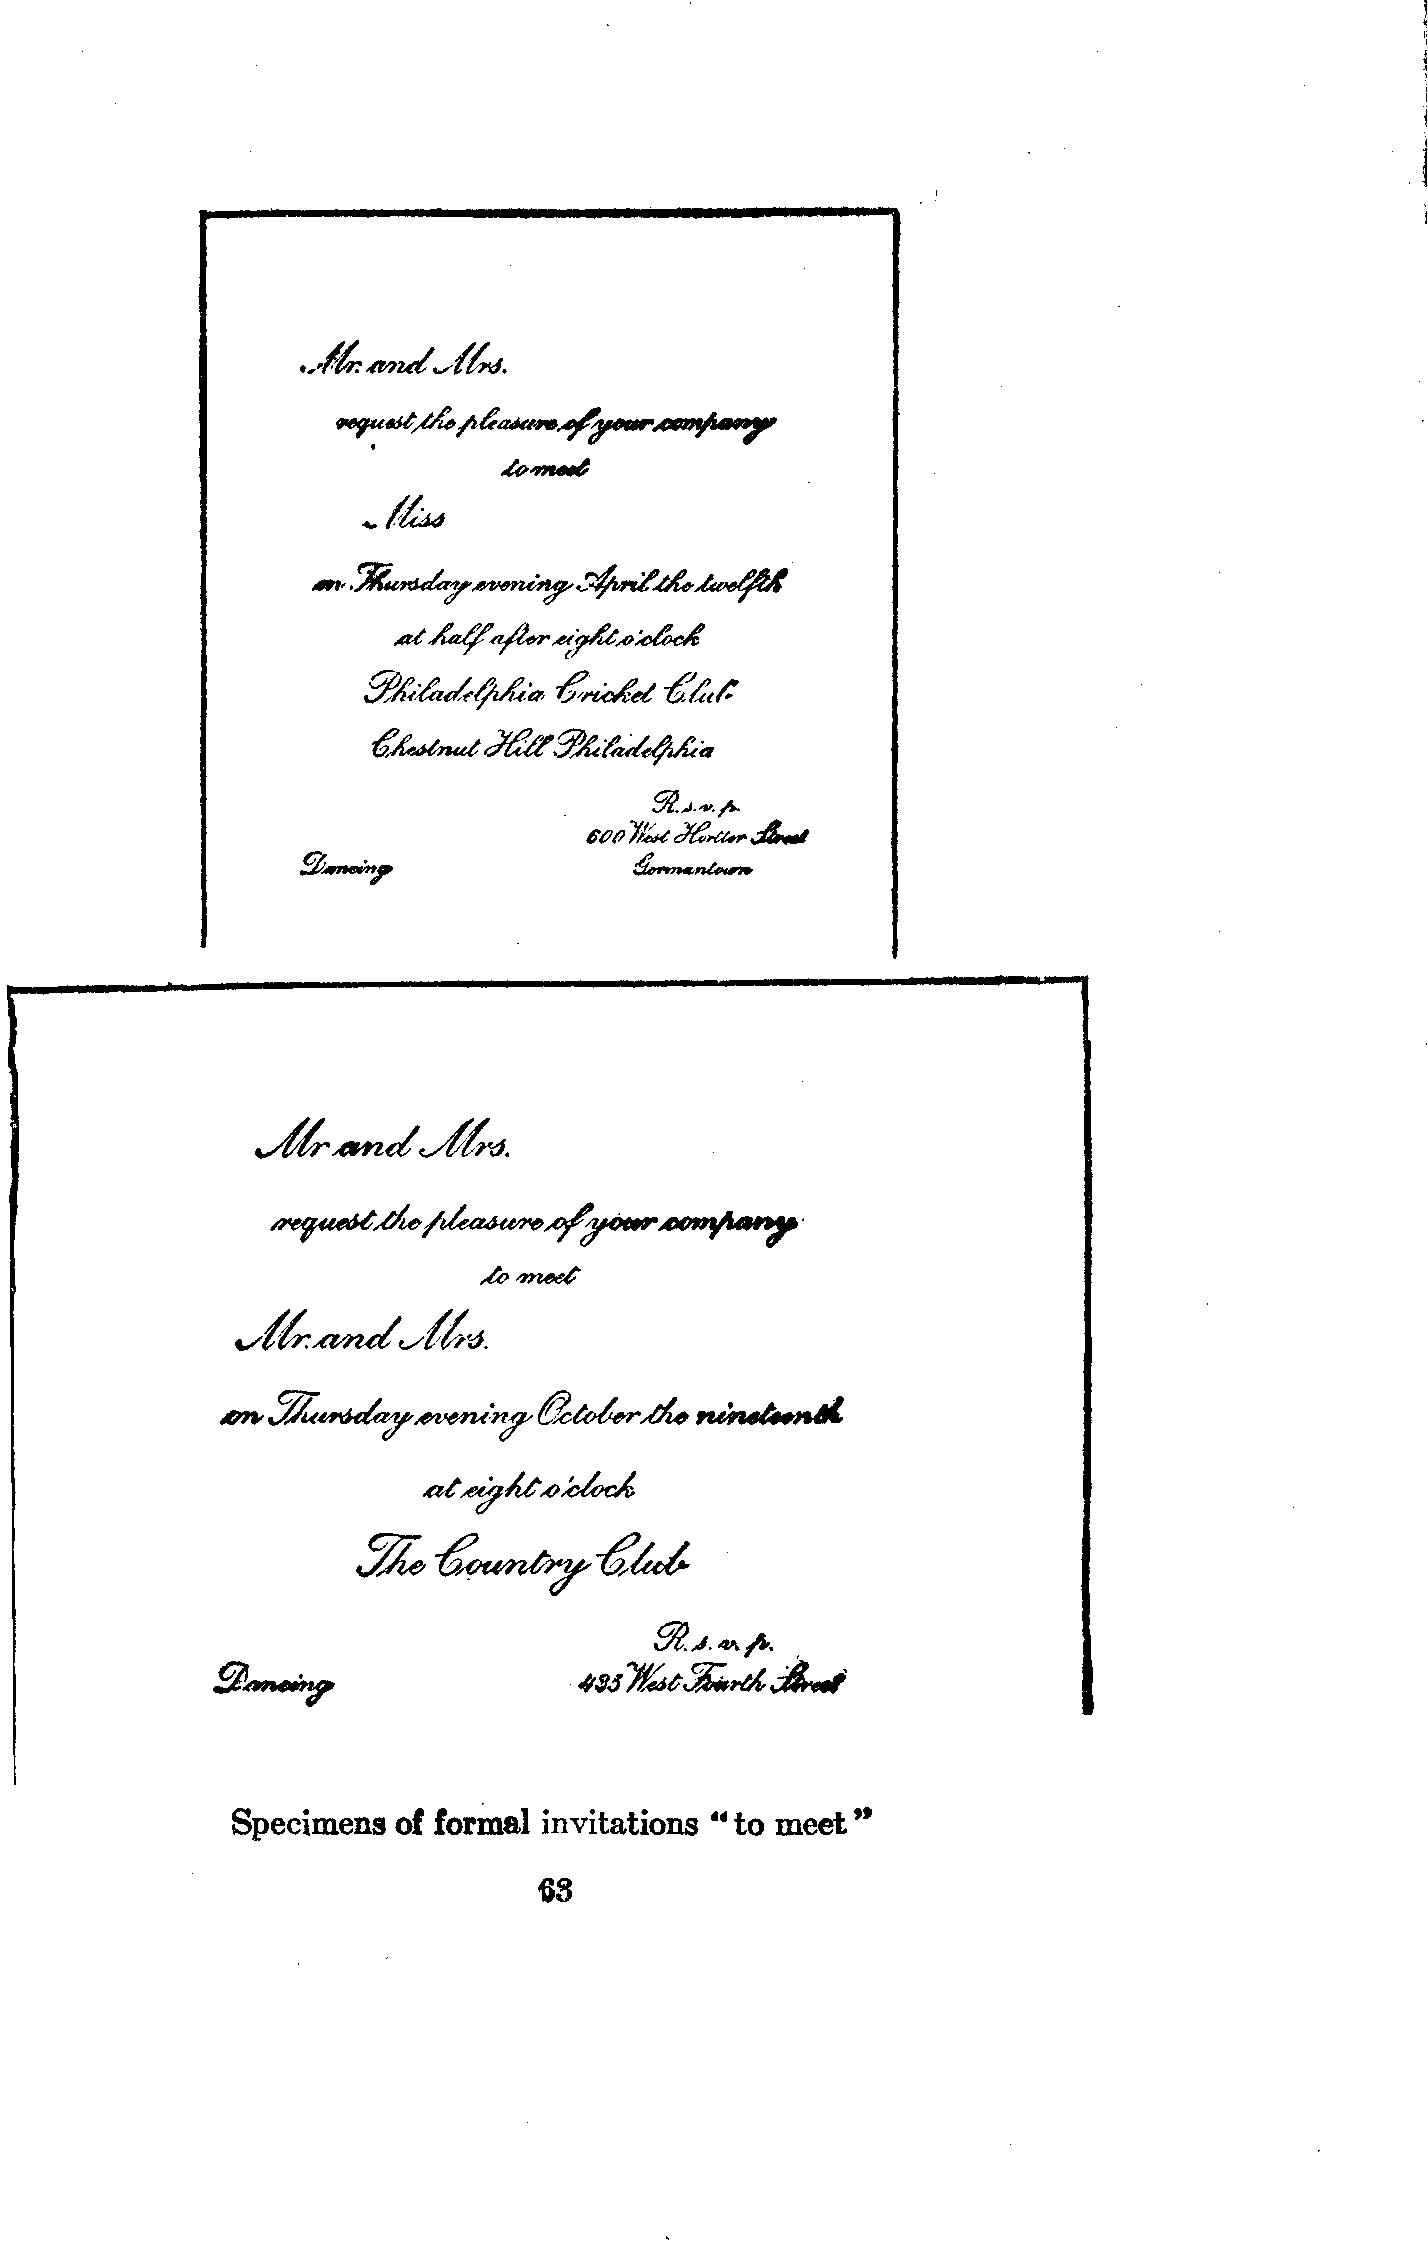 Mr. and Mrs.
request the pleasure of your company
to meet
Miss
on Thursday evening April the twelfth
at half after eight o'clock
Philadelphia Cricket Club
Chestnut Hill Philadelphia
R. s. v. p.
600 West Hortter Street
Dancing Germantown
Mr and Mrs.
request the pleasure of your company
to meet
Mr. and Mrs.
on Thursday evening October the nineteenth
at eight o'clock
The Country Club
R. s. v. p.
Dancing 435 West Fourth Street
Specimens of formal invitations "to meet"
63